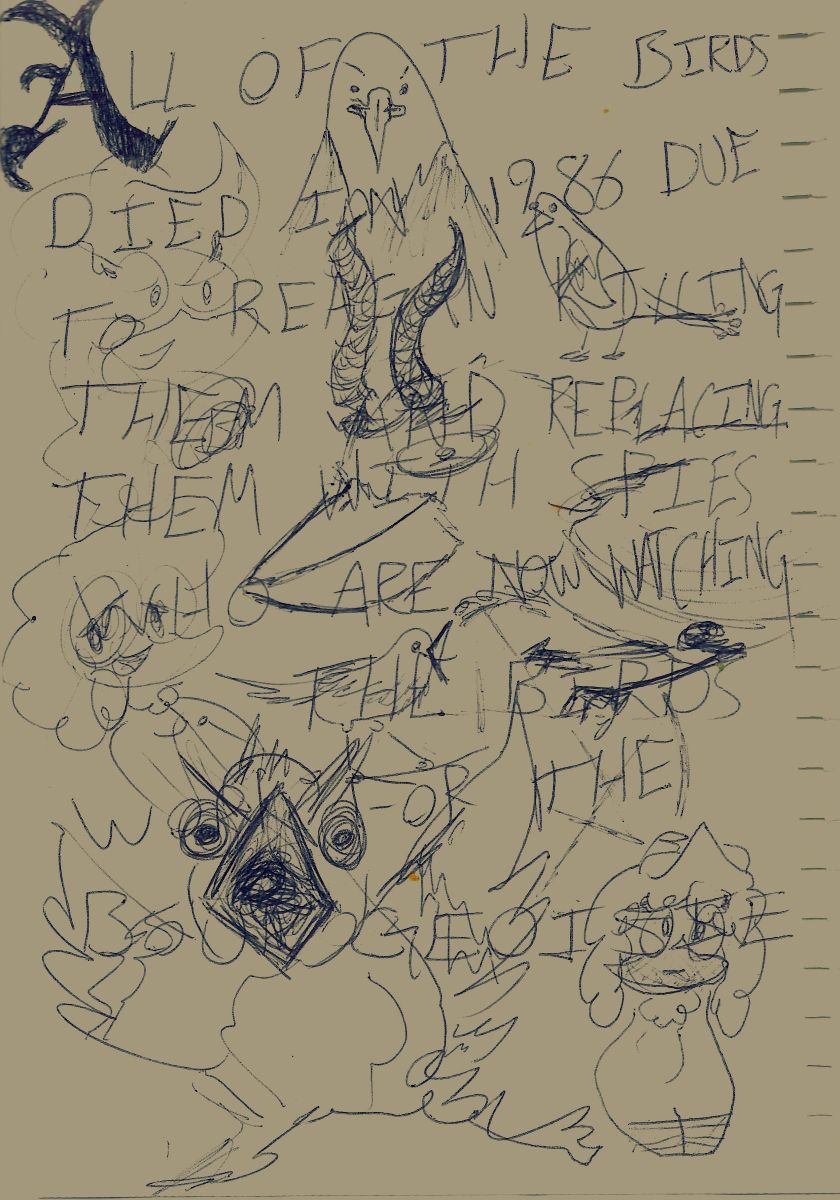 ALL OF THE BIRDS
DIED IN 1986 DUE
TO REAGAN KILLING
THEM AND REPLACING
THEM WITH SPIES
WHO ARE NOW WATCHING
THE BIRDS
FOR THE